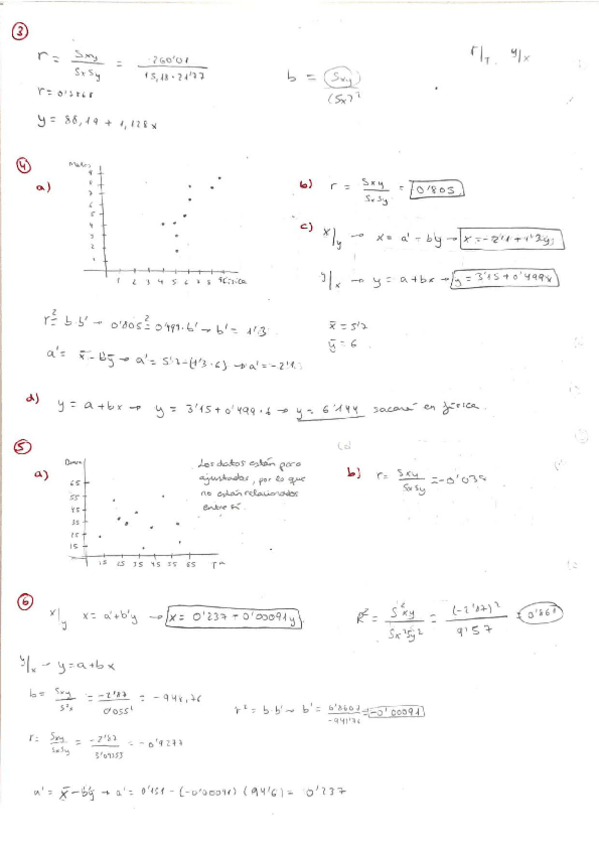 3
r = Sxy / SxSy = -260'01 / 15,18·21'77
b = Sxy / (Sx)²
y/x
y = 88,19 + 1,128x
4
a)
9
8
7
6
5
4
3
2
1
1 2 3 4 5 6 7 8 9 Física
b) r = Sxy / SxSy = 0'805
c) x/y → x = a' - b'y →
y/x → y = a + bx → y = 3'15 + 0'499x
r² = b·b' → 0'805² = 0'499·b' → b' = 1'3
x̄ = 5'7
ȳ = 6
a' = x̄ - b'ȳ → a' = 5'7 - (1'3·6) → a' = -2'1
d) y = a + bx → y = 3'15 + 0'499·6 → y = 6'144 sacará en física.
5
a)
65
55
45
35
25
15
15 25 35 45 55 65
Los datos están poco
ajustados, por lo que
no están relacionados
entre sí.
b) r = Sxy / SxSy = -0'038
6
x/y x = a' + b'y → x = 0'237 - 0'00091y
R² = S²xy / Sx²Sy² = (-2'87)² / 9'57 = 0'861
y/x → y = a + bx
b = Sxy / S²x = -2'87 / = -948,76
r² = b·b' → b' = = -0'00091
r = Sxy / SxSy = -2'87 / 3'09353 = -0'9277
a' = x̄ - b'ȳ → a' = 0'151 - (-0'00091)(94'6) = 0'237